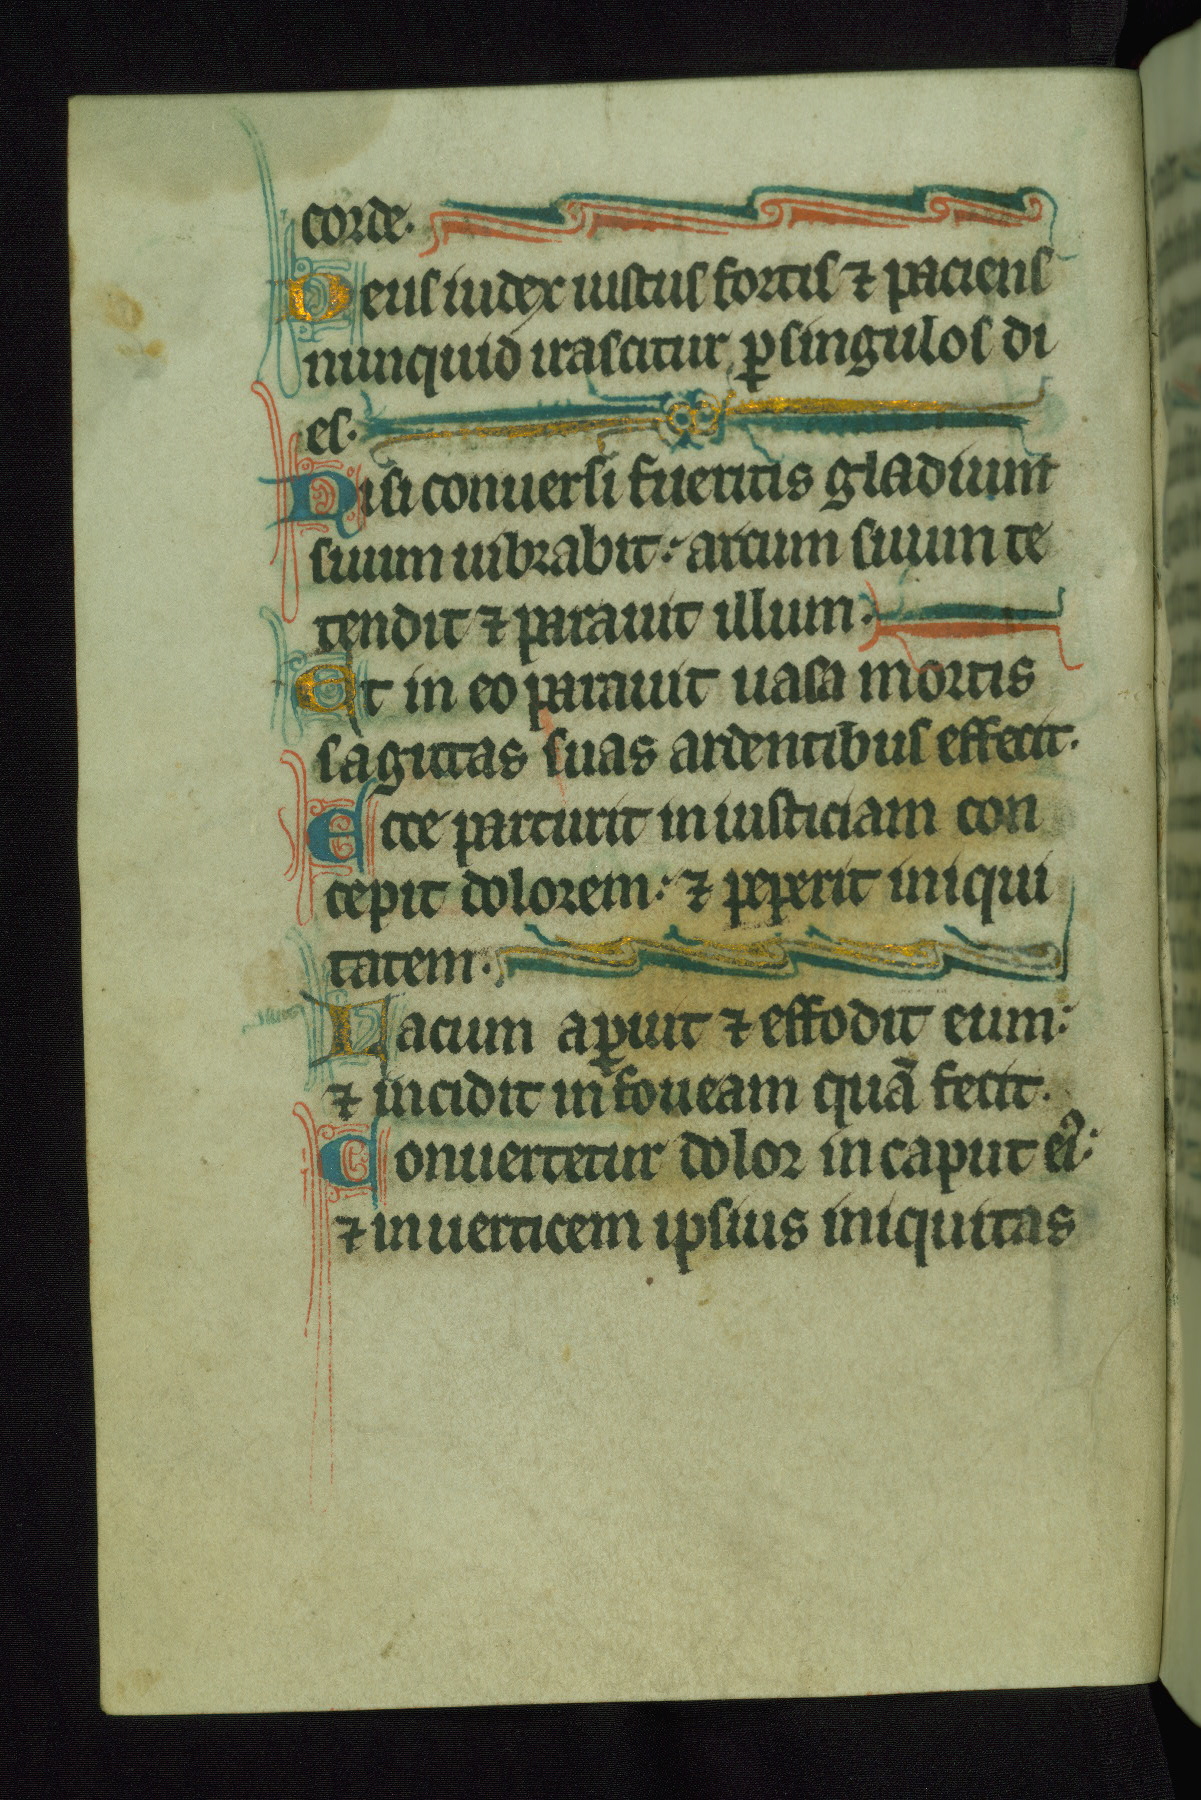 corde.
Deus iudex iustus fortis ⁊ paciens
nunquid irascitur ꝑ singulos di
es.
Nisi conuersi fueritis gladium
suum uibrabit: arcum suum te
tendit ⁊ parauit illum.
Et in eo parauit uasa mortis
sagittas suas ardentibus effecit.
Ecce parturit iniusticiam con
cepit dolorem: ⁊ peperit iniqui
tatem.
Lacum aꝑuit ⁊ effodit eum:
⁊ incidit in foueam quā fecit.
Conuertetur dolor in caput eiꝰ:
⁊ in uerticem ipsius iniquitas